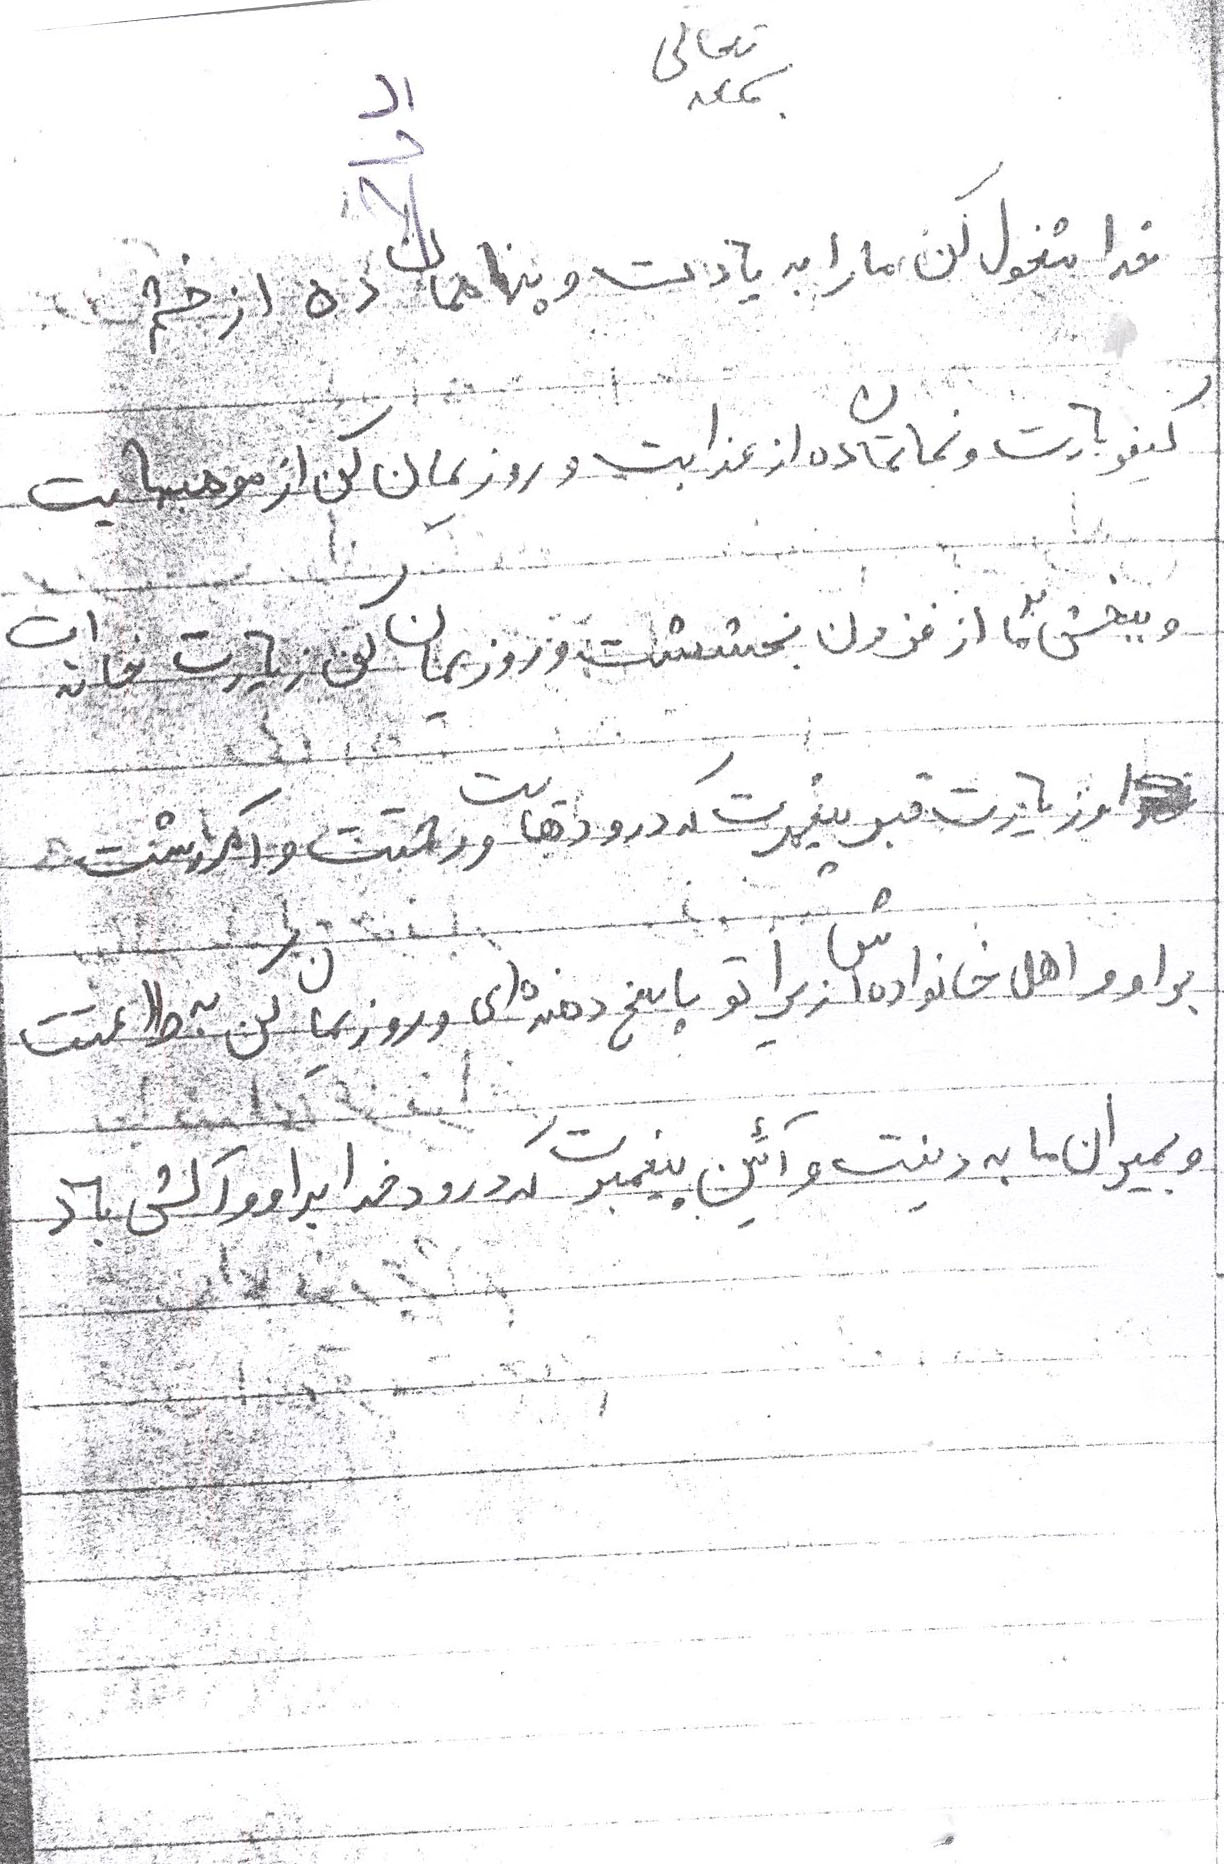 بسمه تعالی
خدا مشغول کن ما را به یادت و پناهمان ده از خشم
کیفر بارت و نجاتمان ده از عذابت و روزیمان کن از موهبهایت
و ببخش بما از فزون بخششت و روزیمان کن زیارت خانه ات
و زیارت قبر پیغمبرت که درودهایت و رحمتت و اکرامت
بر او و اهل خانواده اش زیرا تو پاسخ دهنده ای و روزیمان کن به طاعتت
و بمیران ما به دینت و آئین پیغمبرت که درود خدا بر او و آلش باد